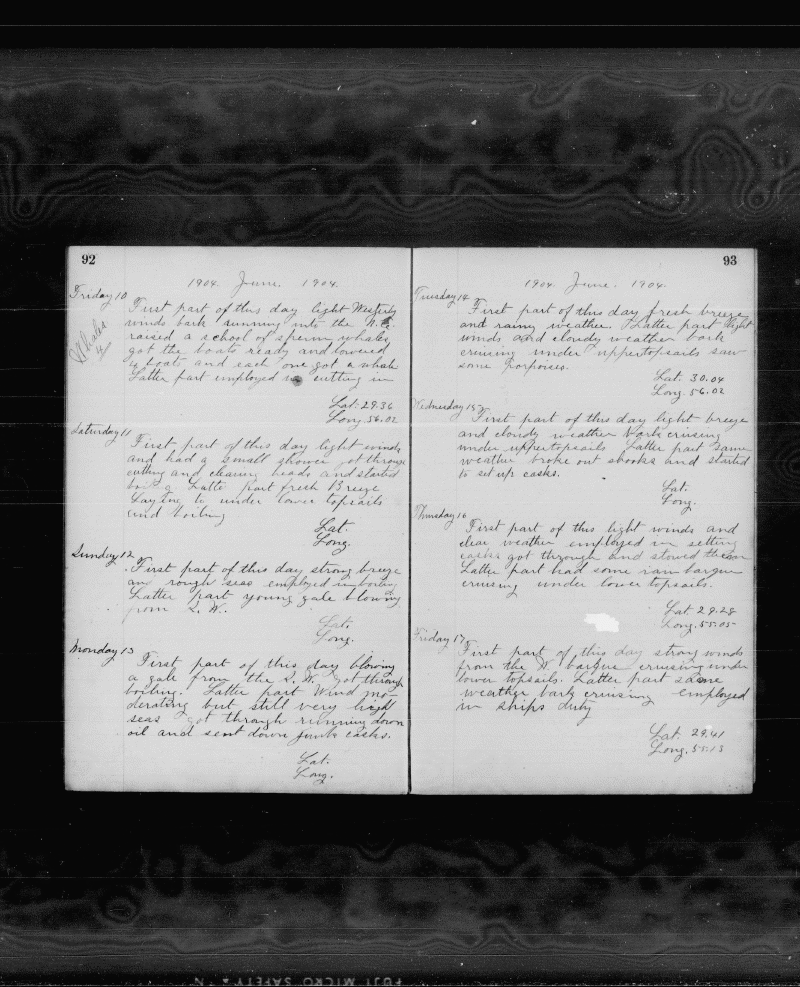 92
1904. June. 1904.
Friday 10
First part of this day light Westerly
winds bark running into the N.E.
raised a school of sperm whales
got the boats ready and lowered
4 boats and each one got a whale
Latter part employed in cutting in
Whales
4
Lat: 29.36
Long 56.02
Saturday 11
First part of this day light winds
and had a small shower got through
cutting and cleaning heads and started
boiling Latter part fresh Breeze
Laying to under lower topsails
and boiling
Lat.
Long.
Sunday 12
First part of this day strong breeze
an rough seas employed in boiling
Latter part young gale blowing
from S. W.
Lat.
Long.
Monday 13
First part of this day blowing
a gale from the S. W. got through
boiling. Latter part Wind mo-
derating but still very high
seas got through running down
oil and sent down junk casks.
Lat.
Long.
93
1904. June. 1904.
Tuesday 14
First part of this day fresh breeze
and rainy weather. Latter part light
winds and cloudy weather bark
cruising under uppertopsails saw
some porpoises.
Lat. 30.04
Long. 56.02
Wednesday 15
First part of this day light breeze
and cloudy weather bark cruising
under uppertopsails Latter part same
weather broke out shooks and started
to set up casks.
Lat.
Long.
Thursday 16
First part of this light winds and
clear weather employed in setting
casks got through and stowed them
Latter part had some rain barque
cruising under lower topsails.
Lat 29.28
Long. 55.05
Friday 17
First part of this day strong winds
from the W. barque cruising under
lower topsails. Latter part same
weather bark cruising employed
in ships duty
Lat. 29.41
Long. 55.13
FUJI MICRO SAFETY N